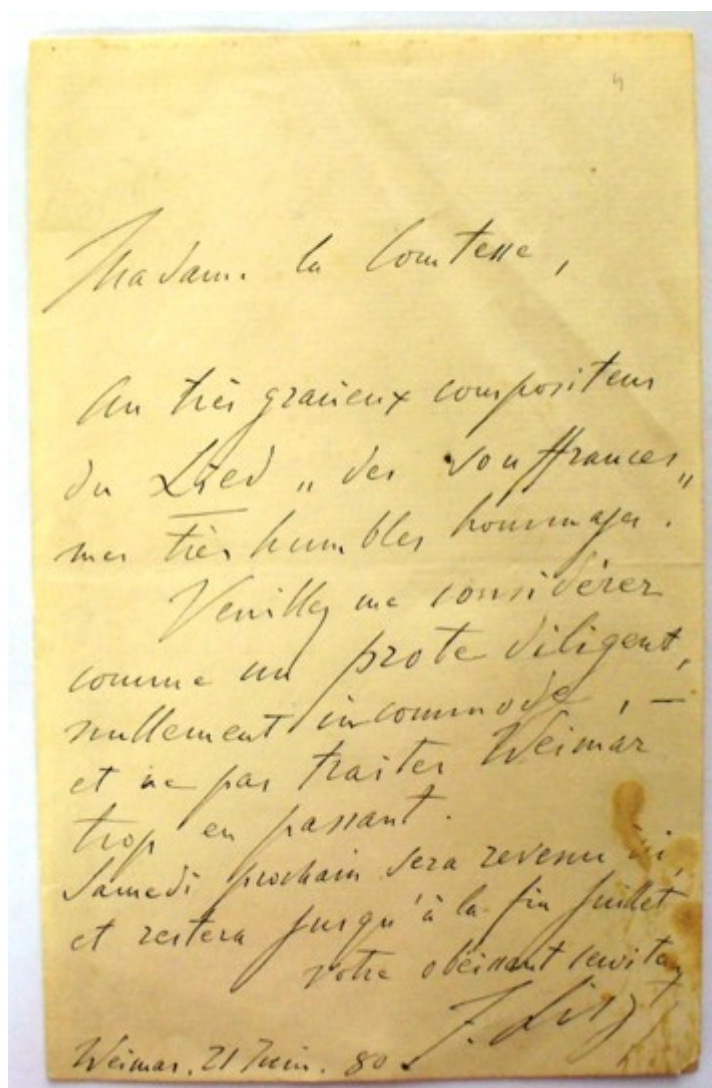 Madame la Comtesse,
Au très gracieux compositeur
du Lied „ des souffrances „
mes très humbles hommages.
Veuillez me considérer
comme un prote diligent,
nullement incommode, –
et ne pas traiter Weimar
trop en passant.
Samedi prochain sera revenu ici,
et restera jusqu'à la fin Juillet
votre obéissant serviteur
F. Liszt
Weimar. 21 Juin. 80.